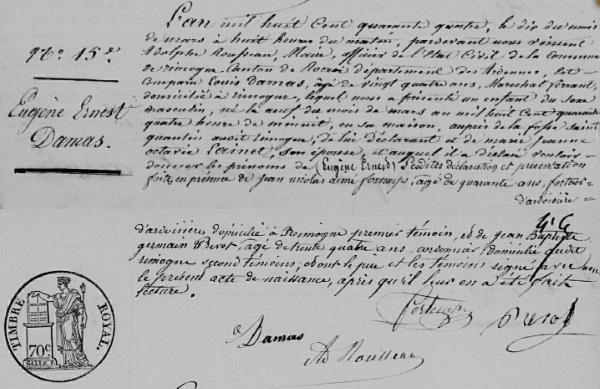 N.° 15.e
Eugène Ernest
Damas.
L'an mil huit cent quarante quatre, le dix du mois
de mars à huit heures du matin, pardevant nous vincent
Adolphe Rousseau, Maire, officier de l'Etat Civil de la Commune
de rimogne, Canton de Rocroi département des Ardennes, est
comparu Louis Damas, agé de vingt quatre ans, Marechal ferrant,
domicilié à rimogne, lequel nous a présenté un enfant du sexe
masculin, né le neuf du mois de mars an mil huit cent quarante
quatre heure de minuit, en sa maison, auprès de la fosse saint
quentin audit rimogne, de lui déclarant et de marie jeanne
octavie son épouse, et auquel il a déclaré vouloir
donner les prénoms de (Eugène Ernest) lesdites déclaration et présentation
faites en présence de jean nicolas aimé agé de quarante ans,
d'ardoisière
d'ardoisières domicilié à Rimogne premier témoin, et de jean Baptiste
germain Pierot, agé de trente quatre ans, cordonnier domicilié audit
rimogne second témoins; et ont le père et les témoins signé avec nous
le présent acte de naissance, après qu'il leur en a été fait
lecture.
TIMBRE ROYAL.
70c
Damas
Ad Rousseau